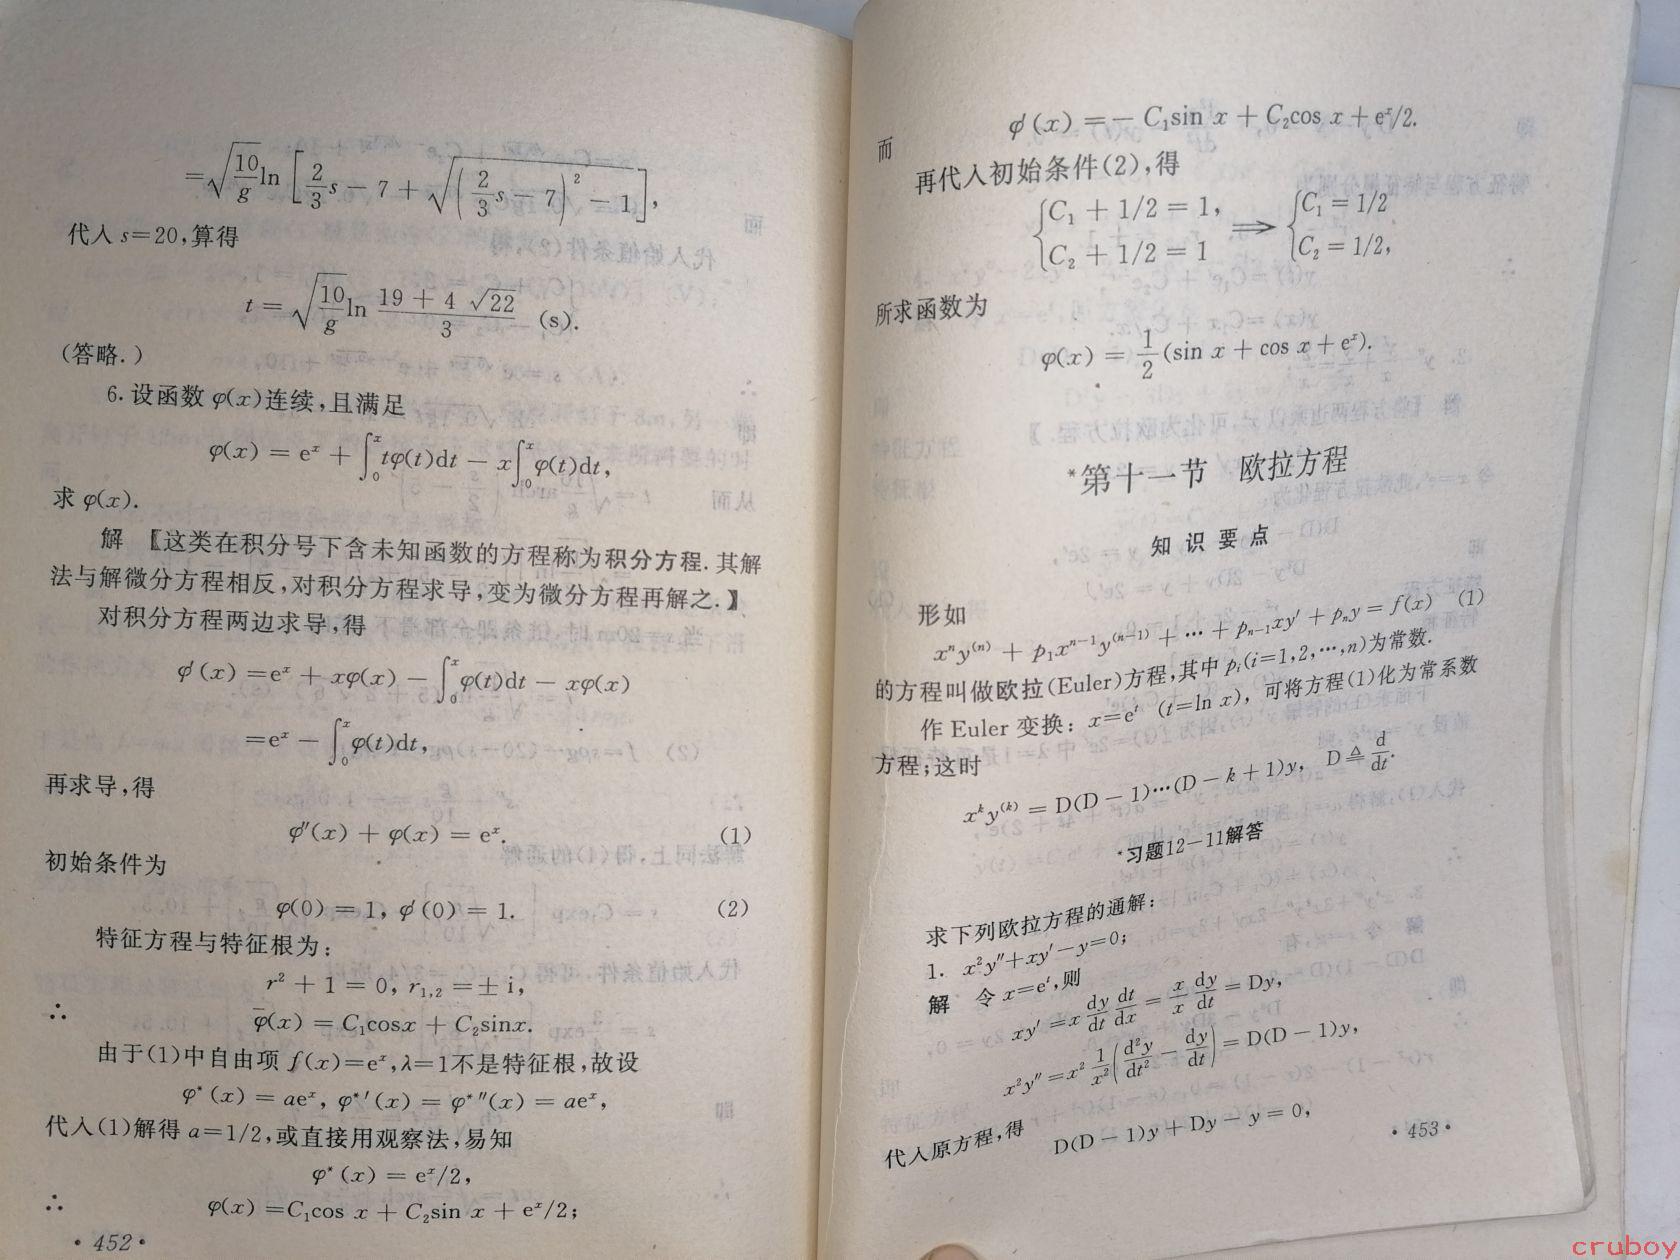 =√(10/g) ln[2/3 s − 7 + √((2/3 s − 7)² − 1)],
代入 s=20,算得
t = √(10/g) ln (19 + 4√22)/3 (s).
(答略.)
6. 设函数 φ(x)连续,且满足
φ(x) = eˣ + ∫₀ˣ tφ(t)dt − x∫₀ˣ φ(t)dt,
求 φ(x).
解 【这类在积分号下含未知函数的方程称为积分方程.其解
法与解微分方程相反,对积分方程求导,变为微分方程再解之.】
对积分方程两边求导,得
φ′(x) =eˣ + xφ(x) − ∫₀ˣ φ(t)dt − xφ(x)
=eˣ − ∫₀ˣ φ(t)dt,
再求导,得
φ″(x) + φ(x) = eˣ. (1)
初始条件为
φ(0) = 1, φ′(0) = 1. (2)
特征方程与特征根为:
r² + 1 = 0, r₁,₂ = ± i,
∴ φ̅(x) = C₁cosx + C₂sinx.
由于(1)中自由项 f(x)=eˣ,λ=1不是特征根,故设
φ*(x) = aeˣ, φ*′(x) = φ*″(x) = aeˣ,
代入(1)解得 a=1/2,或直接用观察法,易知
φ*(x) = eˣ/2,
∴ φ(x) =C₁cos x + C₂sin x + eˣ/2;
· 452 ·
而 φ′(x) =− C₁sin x + C₂cos x + eˣ/2.
再代入初始条件(2),得
{C₁ + 1/2 = 1, C₂ + 1/2 = 1 ⟹ {C₁ = 1/2 C₂ = 1/2,
所求函数为
φ(x) = 1/2 (sin x + cos x + eˣ).
*第十一节 欧拉方程
知识要点
形如
xⁿy⁽ⁿ⁾ + p₁xⁿ⁻¹y⁽ⁿ⁻¹⁾ + … + pₙ₋₁xy′ + pₙy = f(x) (1)
的方程叫做欧拉(Euler)方程,其中 pᵢ(i=1,2,…,n)为常数.
作 Euler 变换: x=eᵗ (t=ln x), 可将方程(1)化为常系数
方程;这时
xᵏy⁽ᵏ⁾ = D(D − 1)…(D − k + 1)y, D ≜ d/dt.
*习题12−11解答
求下列欧拉方程的通解:
1. x²y″+xy′−y=0;
解 令 x=eᵗ,则
xy′ = x dy/dt dt/dx = x/x dy/dt = Dy,
x²y″ = x² 1/x² (d²y/dt² − dy/dt) = D(D − 1)y,
代入原方程,得
D(D − 1)y + Dy − y = 0,
· 453 ·
cruboy